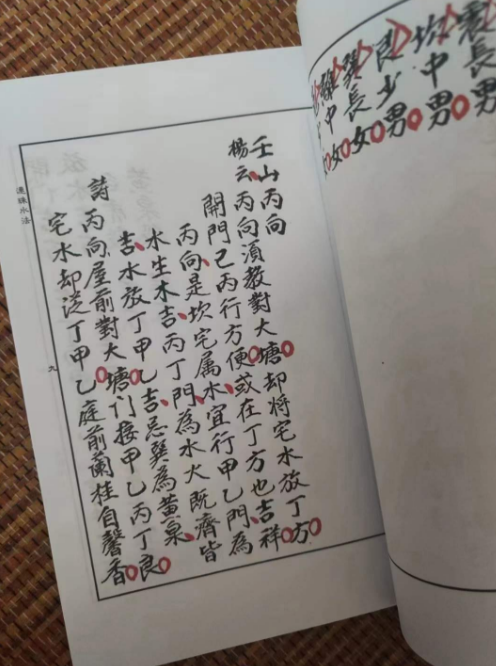 震長男
坎中男
艮少男
巽長女
離中女
女
壬山丙向
楊云丙向須教對大塘却將宅水放丁方
開門己丙行方便或在丁方也吉祥
丙向是坎宅属水宜行甲乙門為
水生木吉丙丁門為水火既濟皆
吉水放丁甲乙吉忌巽為黄泉
詩丙向屋前對大塘门接甲乙丙丁良
宅水却從丁甲乙庭前蘭桂自馨香
連珠水法
九